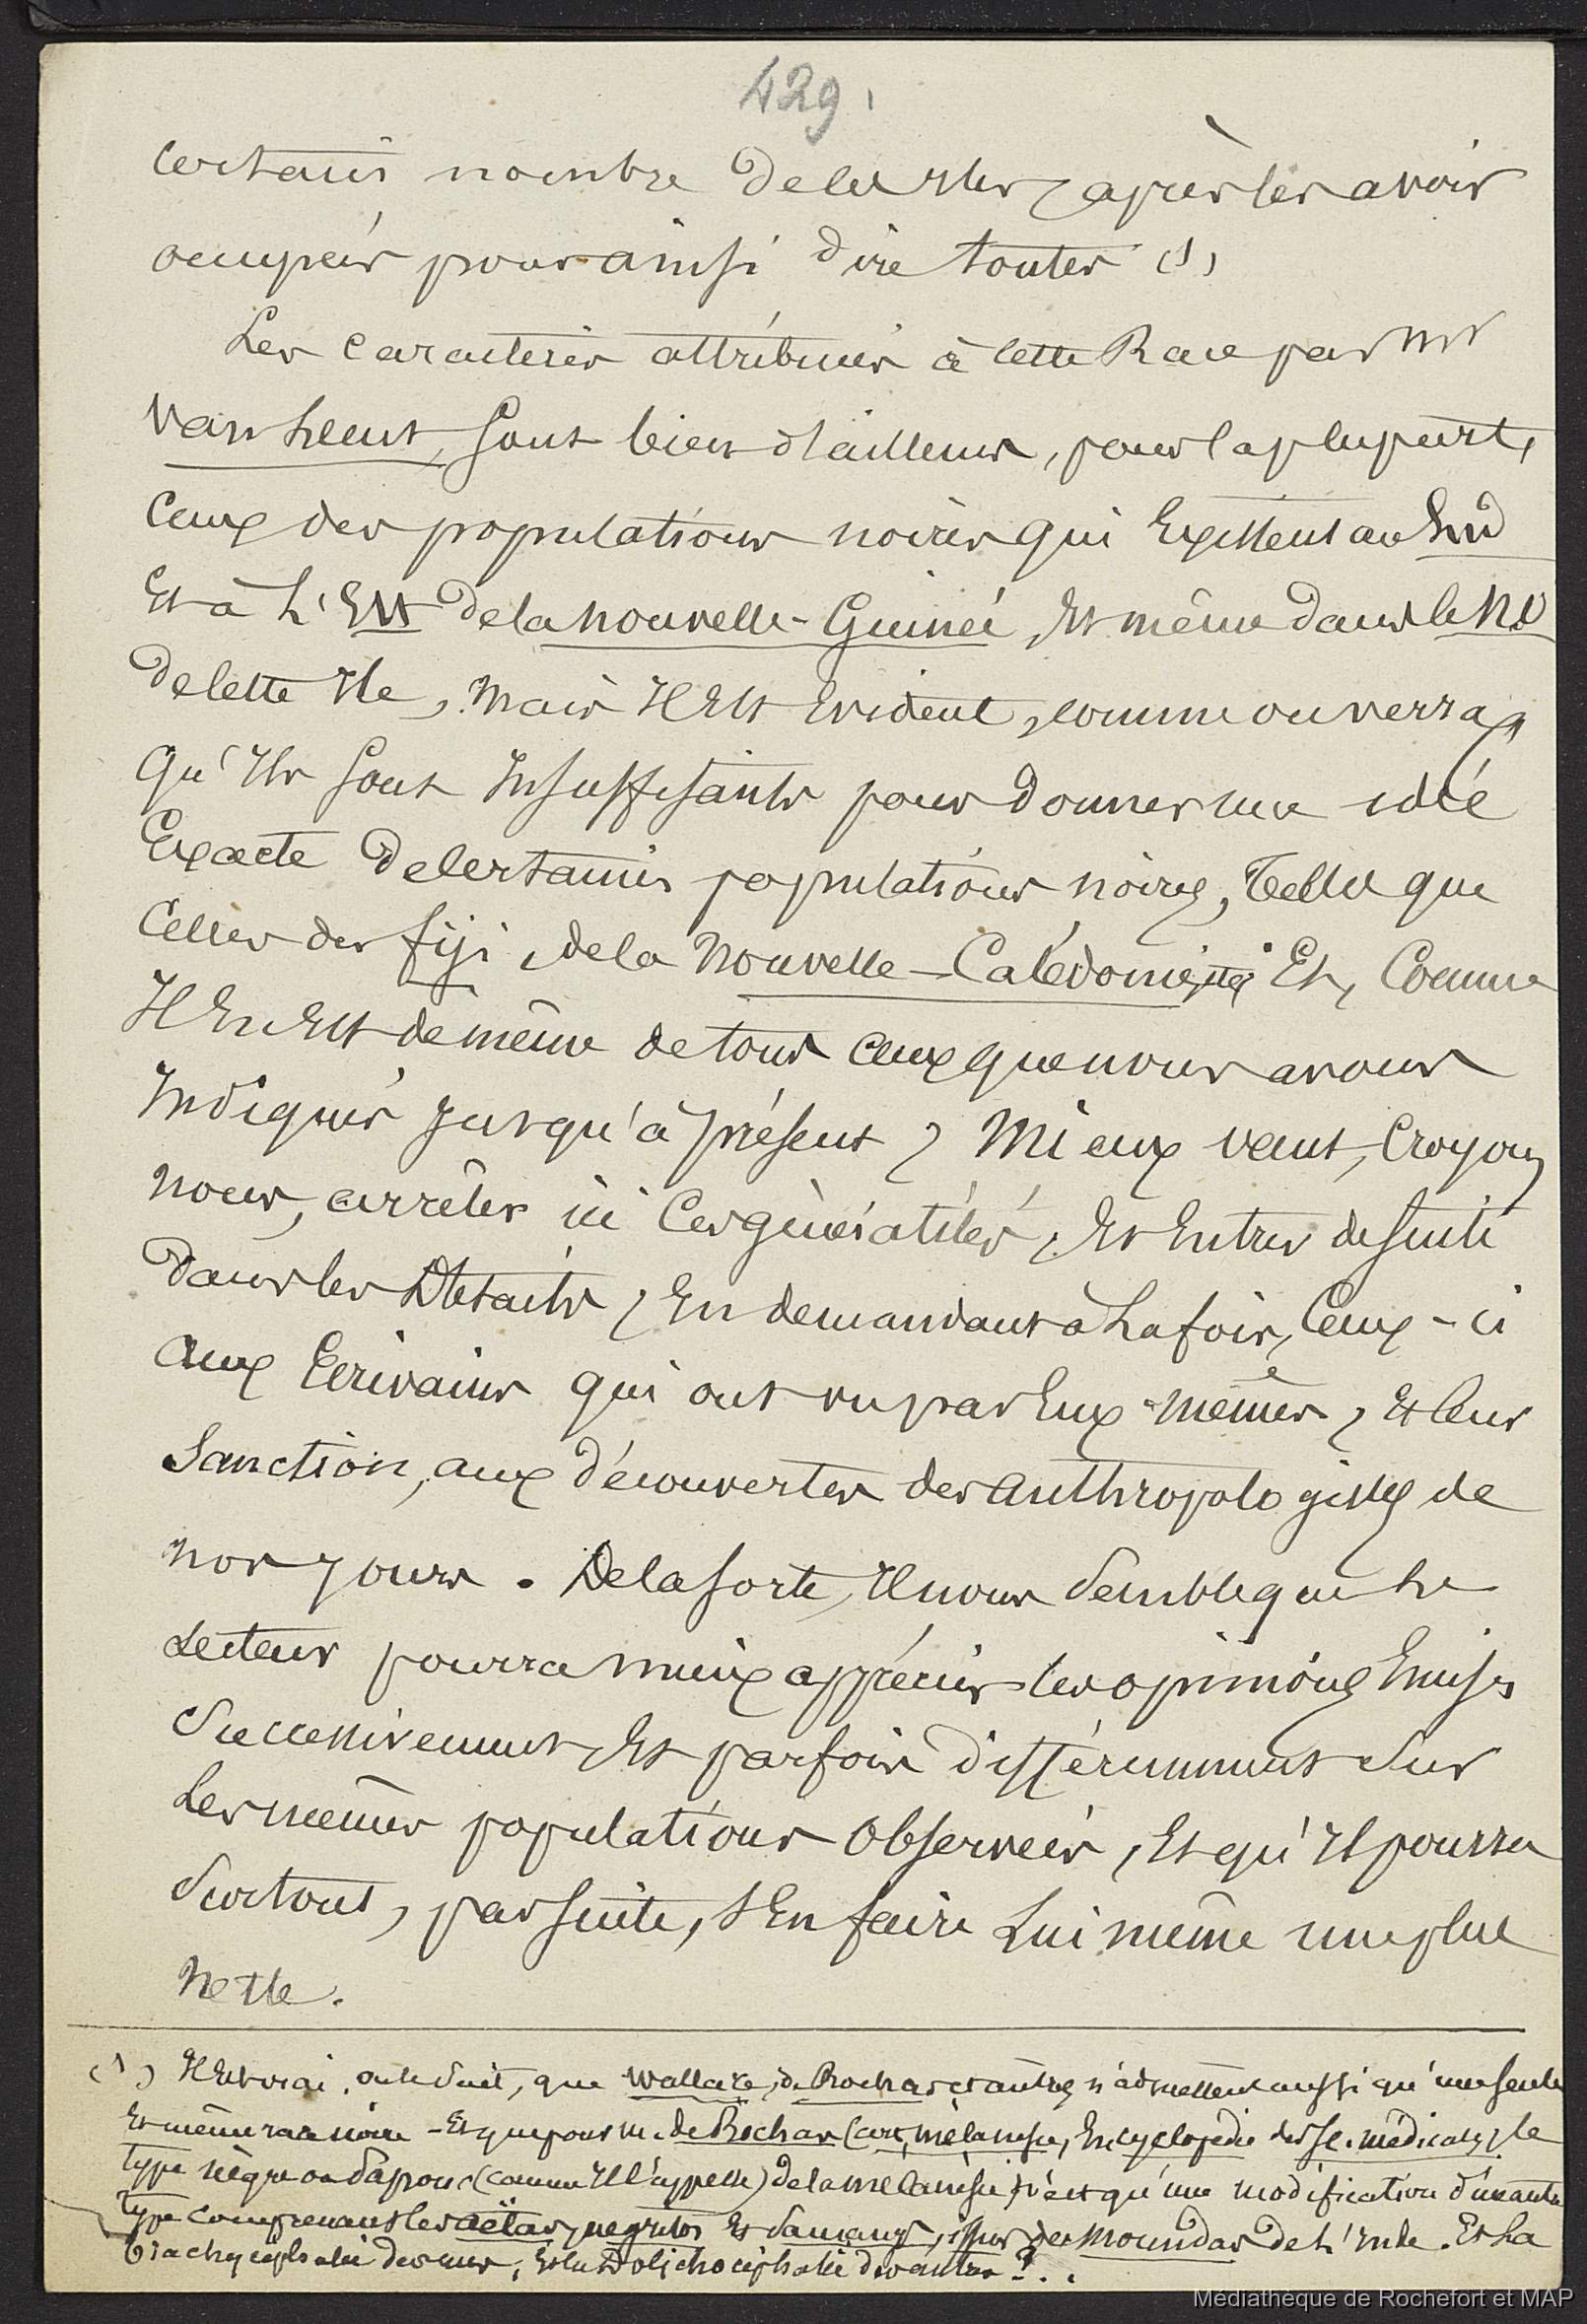 429.
certain nombre de ces Iles, après les avoir
occupées pour ainsi dire toutes (1)
Les caractères attribués à cette Race par Mr
Van Leent, sont bien d'ailleurs, pour la plupart,
ceux des populations noires qui Existent au Sud
Et à L'Est de la Nouvelle-Guinée, Et même dans le N.O
de cette Ile, mais Il Est Evident, comme on verra,
qu'Ils sont Insuffisants pour donner une idée
Exacte de certaines populations noires, telles que
celles des fiji, de la Nouvelle-Calédonie, Et, Comme
Il En Est de même de tous ceux que nous avons
Indiqués Jusqu'à présent, Mieux vaut, Croyons
nous, arrêter ici Ces généralités, Et Entrer de suite
dans les Détails, En demandant à La fois, Ceux-ci
aux Ecrivains qui ont vu par Eux-mêmes, Et leur
Sanction, aux découvertes des anthropologistes de
nos Jours. De la sorte, Il nous semble que Le
Lecteur pourra mieux apprécier les opinions Emises
successivement Et parfois différemment sur
Les mêmes populations observées, Et qu'Il pourra
surtout, par suite, s'En faire Lui même une plus
nette.
(1) Il Est vrai, on le sait, que Wallace, de Rochas et autres n'admettent aussi qu'une seule
Et même race noire - Et que pour M. de Rochas (art. mélanésie, Encyclopédie des Sc. médicales, le
type nègre ou Papou (comme Il l'appelle) de la mélanésie, n'est qu'une modification d'un autre
type comprenant les aëtas, negritos Et Samangs, issus des moundas de L'Inde. Et La
brachycéphalie des uns, Et la Dolichocéphalie des autres ?..
Médiathèque de Rochefort et MAP